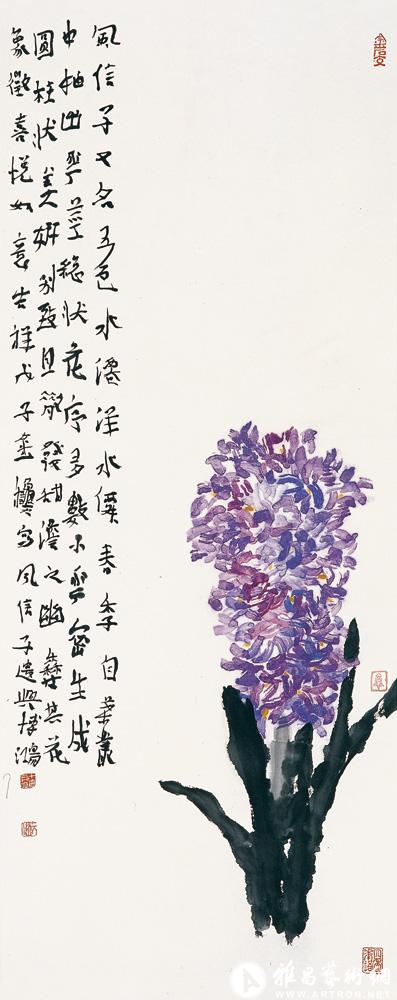 風信子又名五色水僊洋水僊春季自葉叢
中抽出花莖穗狀花序多數小花密生成
圓柱狀美妍別致且散發甜濃之幽香其花
象徵喜悅如意吉祥戊子寫風信子遣興
雅昌藝術網
WWW.ARTRON.NET